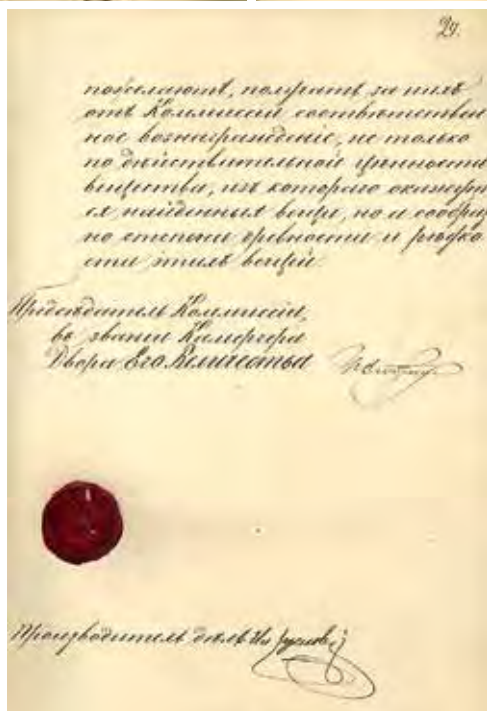 29.
пожелаютъ, получатъ за нихъ
отъ Коммиссіи соотвѣтствен
ное вознагражденіе, не только
по дѣйствительной цѣнности
вещества, изъ котораго окажут
ся найденныя вещи, но и сообраз
но степени древности и рѣдко
сти этихъ вещей.
Предсѣдатель Коммиссіи,
въ званіи Камергера
Двора Его Величества
Производитель дѣлъ